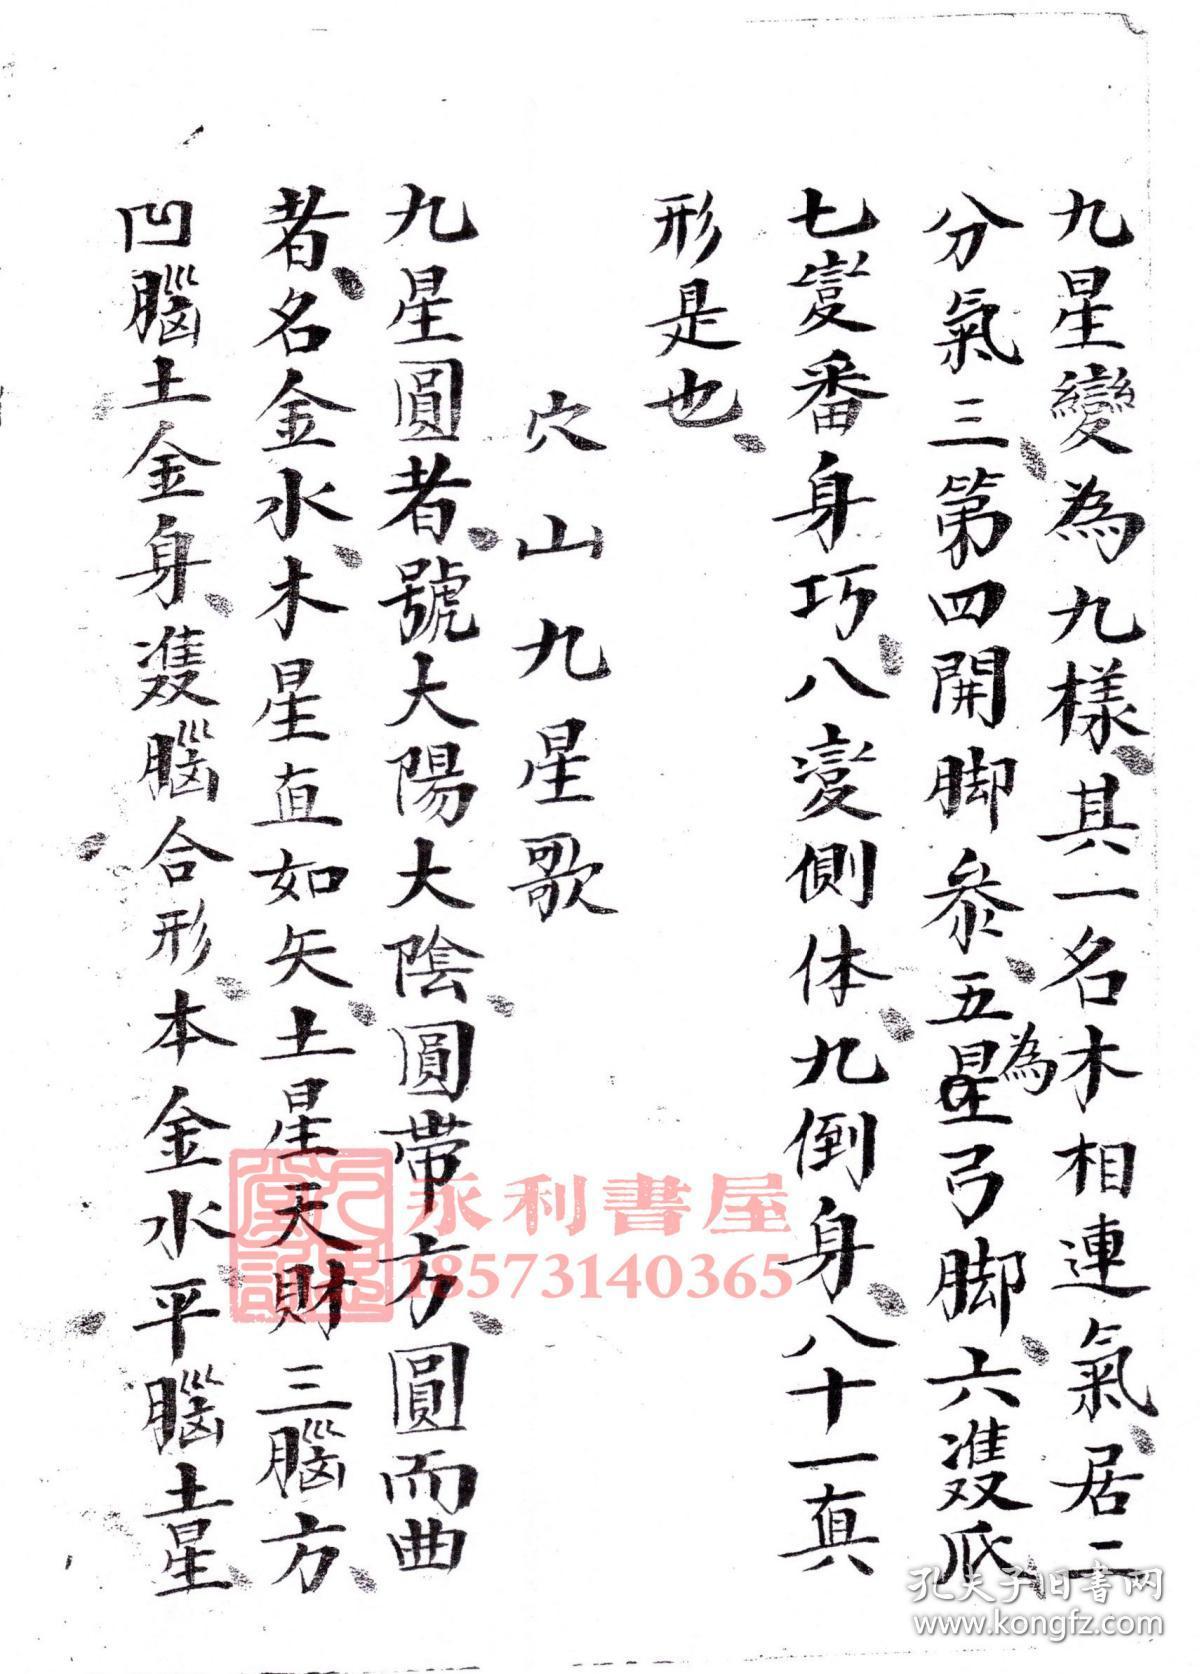 九星變為九樣其一名木相連氣居二
分氣三第四開脚叅五星為弓脚六雙瓜
七变番身巧八变側体九倒身八十一真
形是也
穴山九星歌
九星圓者號大陽大陰圓帶方圓而曲
者名金水木星直如矢土星天財三腦方
凹腦土金身雙腦合形本金水平腦土星
永利書屋
18573140365
孔夫子旧书网
www.kongfz.com